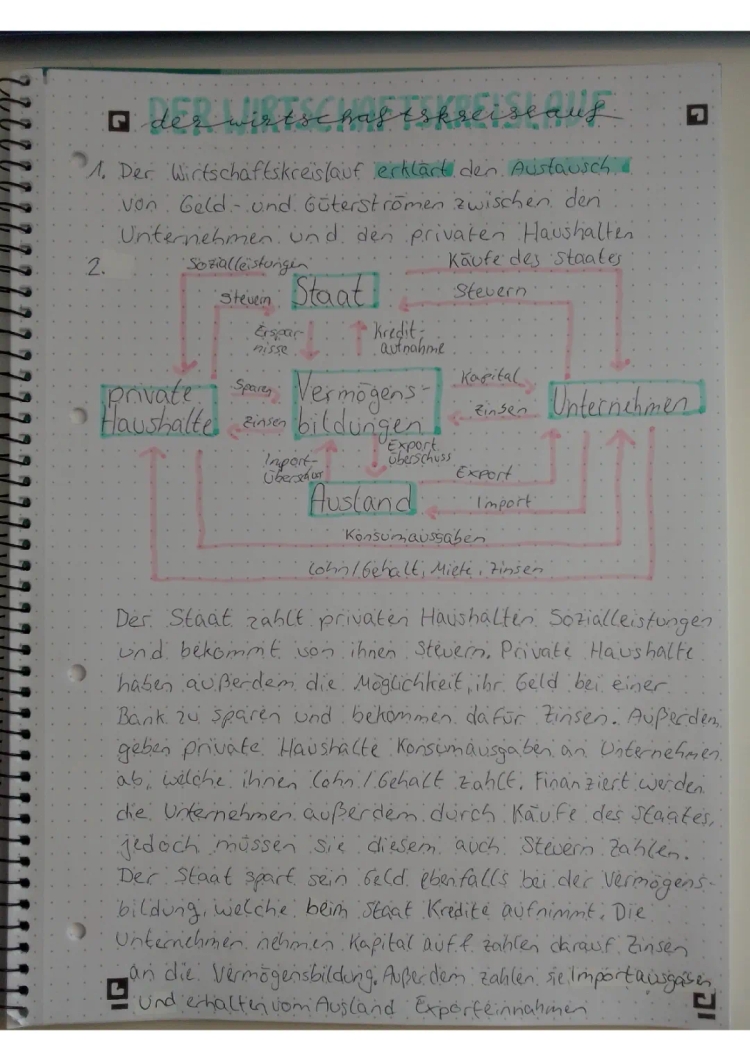 DER WIRTSCHAFTSKREISLAUF
der wirtschaftskreislauf
1. Der Wirtschaftskreislauf erklärt den Austausch
von Geld- und Güterströmen zwischen den
Unternehmen und den privaten Haushalten
2.
Sozialleistungen
Käufe des Staates
Steuern
Staat
Steuern
Erspar-
nisse
Kredit-
aufnahme
private
Haushalte
Sparen
Zinsen
Vermögens-
bildungen
Kapital
Zinsen
Unternehmen
Import-
überschuss
Export
überschuss
Ausland
Export
Import
Konsumausgaben
Lohn/Gehalt, Miete, Zinsen
Der Staat zahlt privaten Haushalten Sozialleistungen
und bekommt von ihnen Steuern. Private Haushalte
haben außerdem die Möglichkeit, ihr Geld bei einer
Bank zu sparen und bekommen dafür Zinsen. Außerdem
geben private Haushalte Konsumausgaben an Unternehmen
ab, welche ihnen Lohn/Gehalt zahlt. Finanziert werden
die Unternehmen außerdem durch Käufe des Staates,
jedoch müssen sie diesem auch Steuern zahlen.
Der Staat spart sein Geld ebenfalls bei der Vermögens-
bildung, welche beim Staat Kredite aufnimmt. Die
Unternehmen nehmen Kapital auf & zahlen darauf Zinsen
an die Vermögensbildung. Außerdem zahlen sie Importausgaben
und erhalten vom Ausland Exporteinnahmen